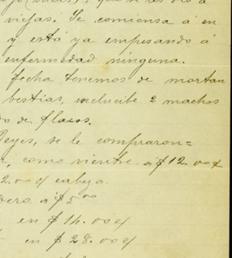 viejas. Se comiensa á en
y está ya empesando á
enfermedad ninguna.
fecha tenemos de mortan
bestias, inclucibe 2 machos
do de flacos.
Reyes, se le compraron=
, como vientre a $12.00
2.00 cabeza.
dero. a $5.00
en $14.00
en $28.00